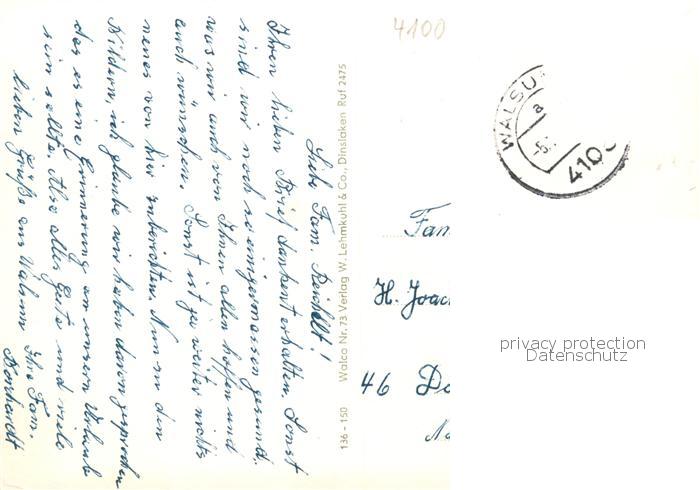 Liebe Fam. Reichelt!
Ihren lieben Brief dankent erhalten. Sonst
sind wir noch so einigermassen gesund.
was wir auch von Ihnen allen hoffen und
auch wünschen. Sonst ist ja weiter nichts
neues von hier zuberichten. Nun zu den
Bildern, ich glaube wir haben davon gesprochen
das es eine Erinnerung an unsern Urlaub
sein sollte. Also alles Gute und viele
lieben Grüße aus Walsum Ihre Fam.
136-150 Walco Nr. 73 Verlag W. Lehmkuhl & Co., Dinslaken Ruf 2475
4100
WALSU
a
4100
Fam
H. Joac
46 Do
privacy protection
Datenschutz